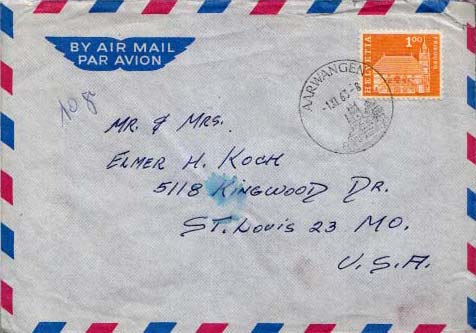 BY AIR MAIL
PAR AVION
10 g
1.00
HELVETIA
FRIBOURG
AARWANGEN
MR. & MRS.
ELMER H. KOCH
5118 KINGWOOD DR.
ST. LOUIS 23 MO.
U.S.A.